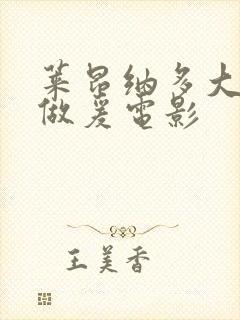 莱昂纳多大
做爰电影
王美香